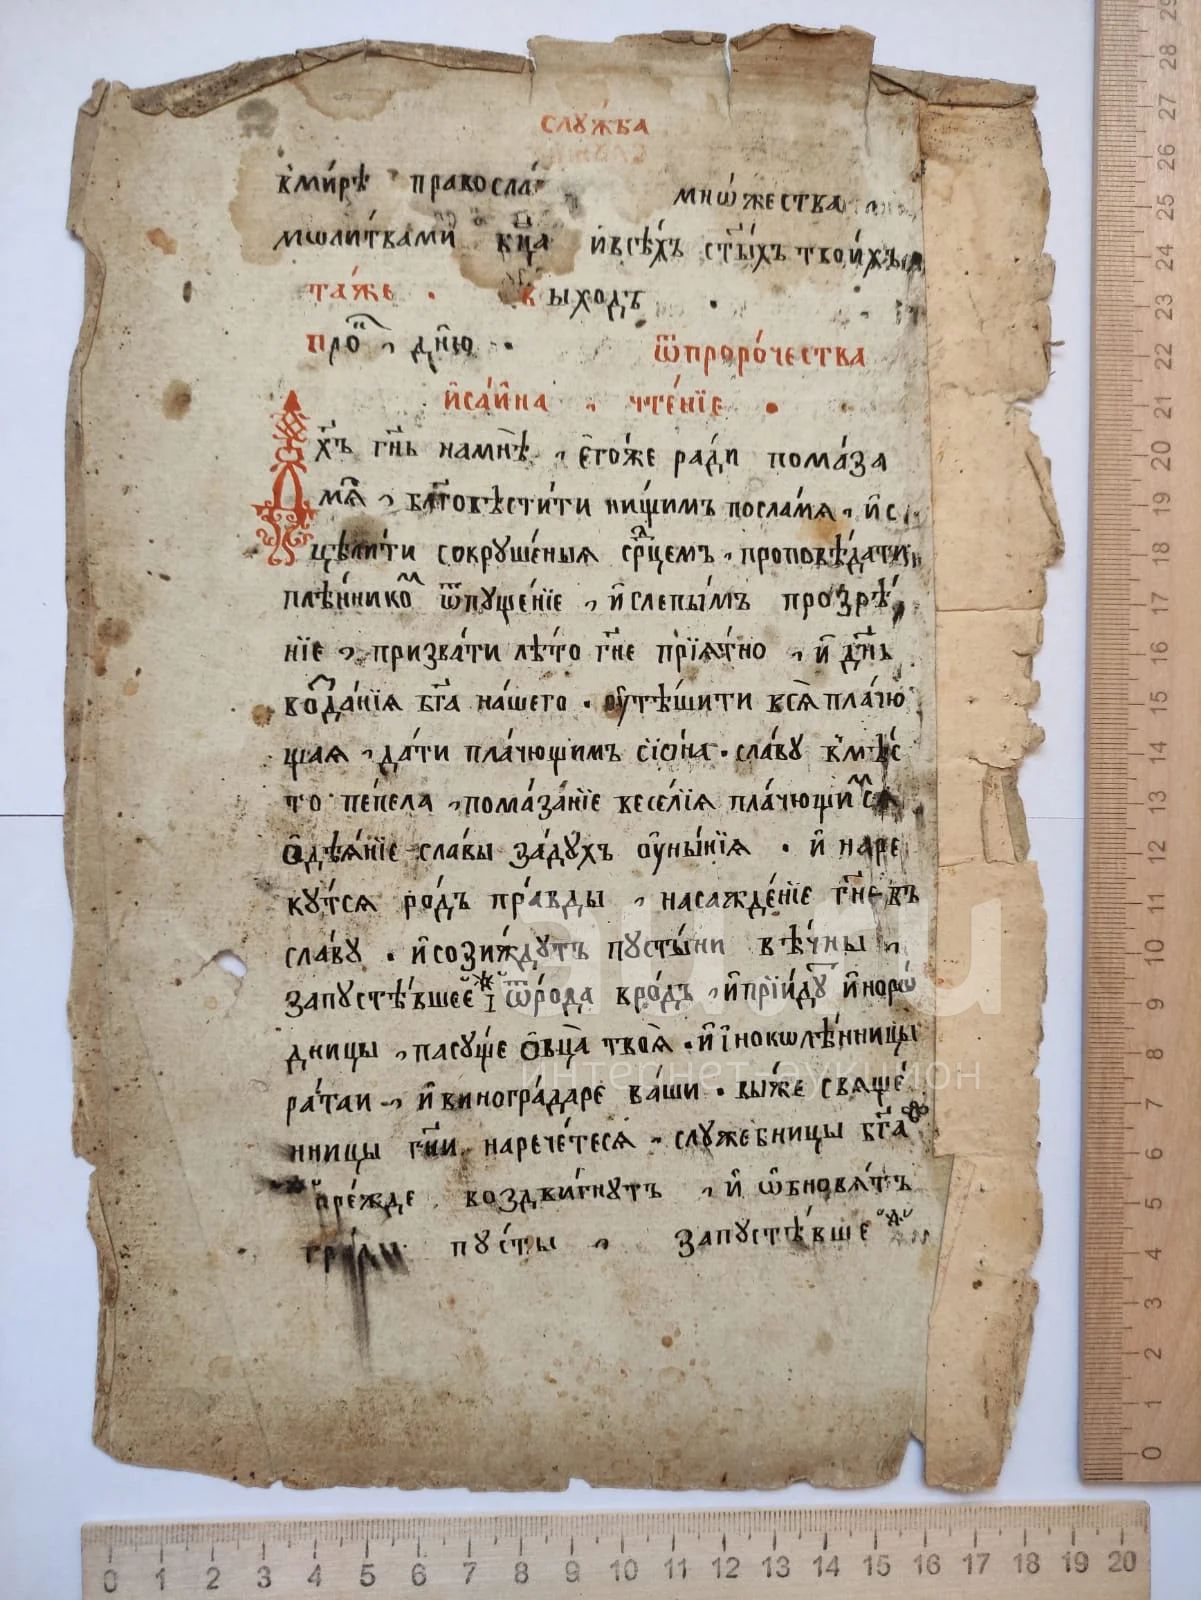 слꙋ́жба
в̾ми́рѣ правосла́ мнѡ́жества
мѡли́твами бц҃а и҆всѣ́хъ ст҃ы́хъ твои́хъ
та́же . выходъ .
про́ , дн҃ю . ѿпроро́чества
и҆са́и҆на , чте́нїе .
Дх҃ъ гн҃ь намнѣ̀ , є҆го́же ра́ди пома́за
мѧ̀ , бл҃говѣсти́ти ни́щимъ посла́мѧ , и҆с
цѣли́ти сокрꙋше́ныѧ ср҃цемъ , проповѣ́дати
плѣ́нникоⷨ ѿпꙋще́нїе , и҆слепы́мъ прозрѣ́
нїе , призва́ти лѣ́то гн҃е прїѧ́тно , и҆ дн҃ь
возⷣа́нїѧ бг҃а на́шего . ᲂу҆тѣ́шити всѧ̀ пла́чю
щаѧ , да́ти пла́чющимъ сїѡ́на . сла́вꙋ в̾мѣ́с
то пе́пела , пома́занїе весе́лїѧ пла́чющиⷨсѧ
Ѻ҆дѣѧ́нїе сла́вы за́дꙋхъ ᲂу҆ны́нїѧ . и҆ наре
кꙋ́тсѧ ро́дъ пра́вды , насажде́нїе гн҃е въ
сла́вꙋ . и҆сози́ждꙋтъ пꙋсты́ни вѣ́чны ,
запꙋстѣ́вшеє ѿро́да вро́дъ , и҆прїи́дꙋⷮ и҆норѡ́
дницы , пасꙋ́ще ѻ҆вц҃а твоѧ̀ . и҆ і҆нокѡлѣ́нницы
ра́таи , и҆виногра́даре ва́ши . вы́же свѧще́
нницы гн҃и нарече́тесѧ , слꙋже́бницы бг҃а
пре́жде воздви́гнꙋтъ , и҆ ѡ҆бновѧ́тъ
гра́ды пꙋ́сты , запꙋстѣ́вше
au.ru
интернет-аукцион
0 1 2 3 4 5 6 7 8 9 10 11 12 13 14 15 16 17 18 19 20
0 1 2 3 4 5 6 7 8 9 10 11 12 13 14 15 16 17 18 19 20 21 22 23 24 25 26 27 28 29